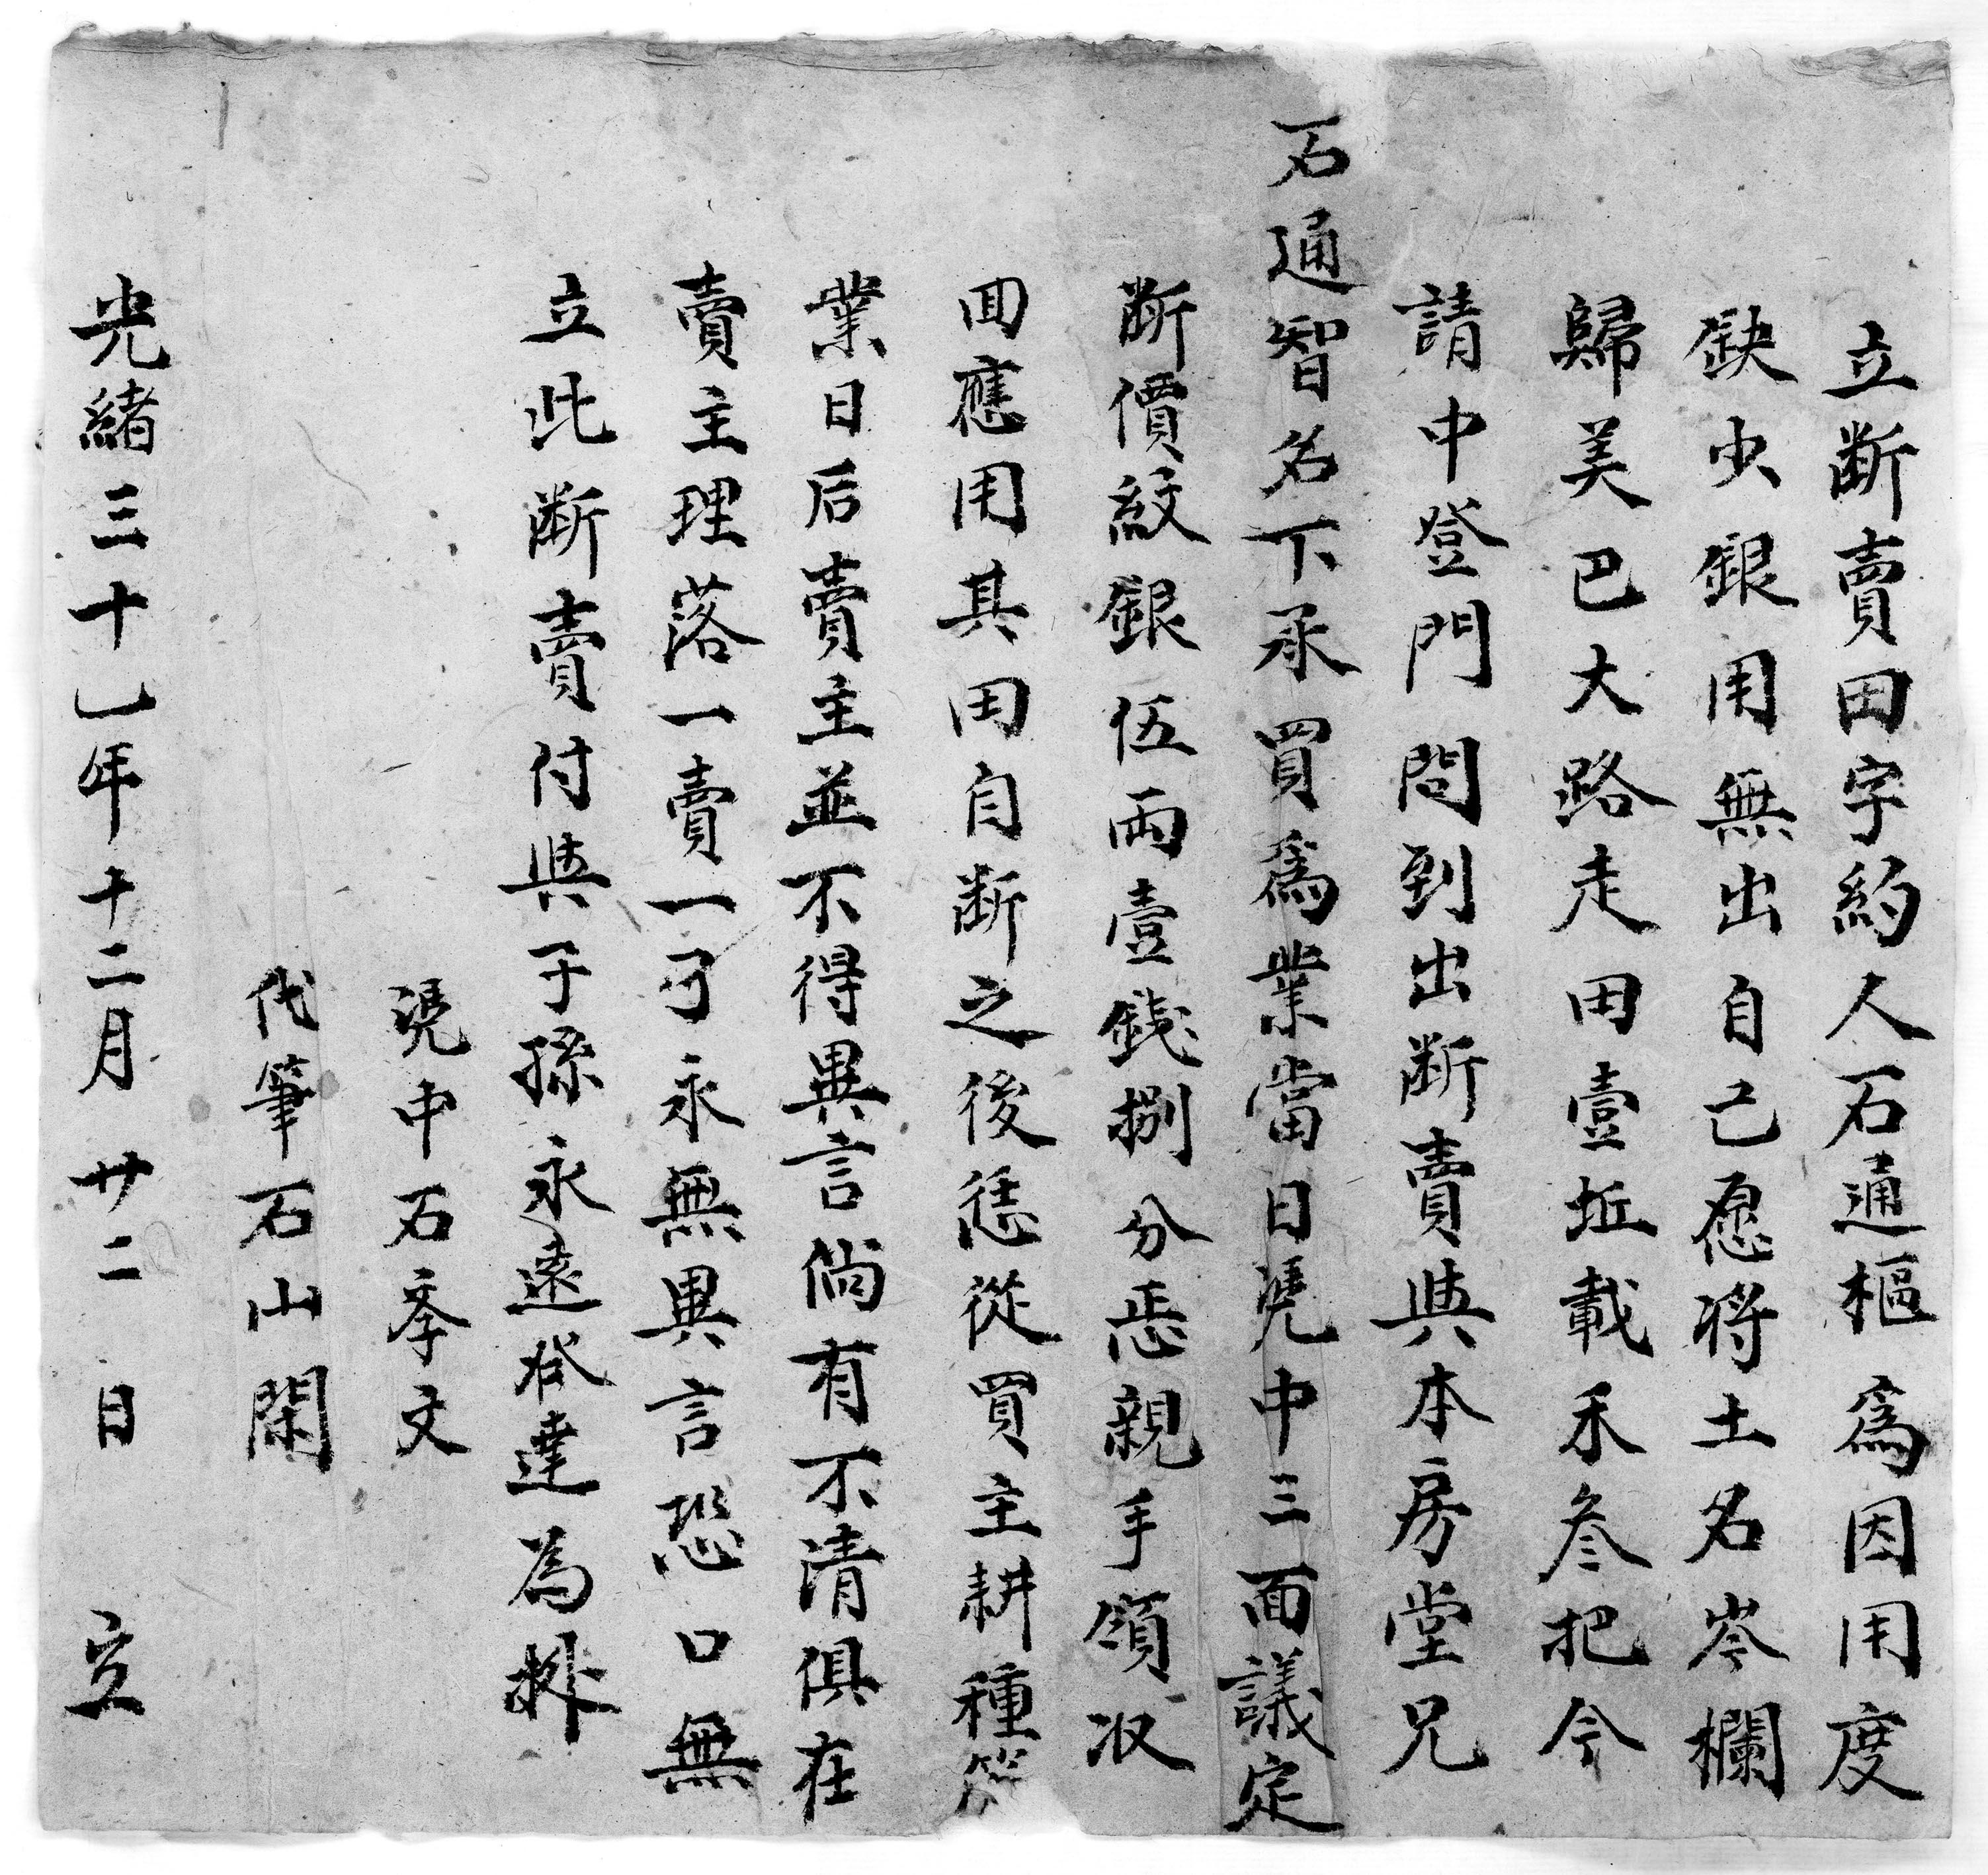 立断賣田字約人石通樞為因用度
缺少銀用無出自己愿将土名岑欄
歸美巴大路走田壹坵載禾叁把今
請中登門問到出断賣與本房堂兄
石通智名下承買為業當日凴中三面議定
断價紋銀伍両壹錢捌分恁親手領収
囬應用其田自断之後恁從買主耕種管
業日后賣主並不得異言倘有不清俱在
賣主理落一賣一了永無異言恐口無
立此断賣付與子孫永遠發達為㨿
凴中石季文
代筆石山閑
光緒三十一年十二月廿二日立